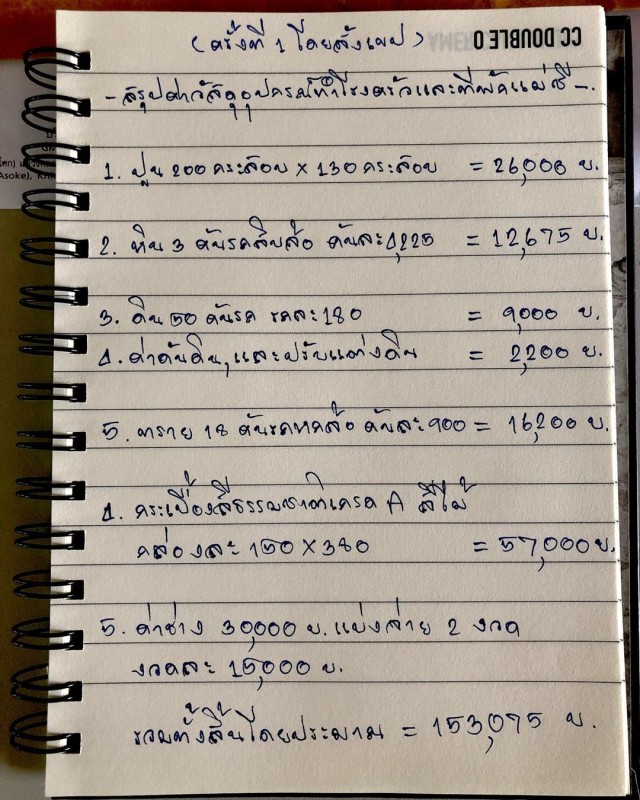 CC DOUBLE O
(ครั้งที่ 1 โดยสังเขป)
- สรุปค่าวัสดุอุปกรณ์ทำโรงครัวและที่พักแม่ชี -.
1. ปูน 200 กระสอบ x 130 กระสอบ = 26,000 บ.
2. หิน 3 คันรถสิบล้อ คันละ 4,225 = 12,675 บ.
3. ดิน 50 คันรถ รถละ 180 = 9,000 บ.
4. ค่าดันดิน, และปรับแต่งดิน = 2,200 บ.
5. ทราย 18 คันรถหกล้อ คันละ 900 = 16,200 บ.
4. กระเบื้องสีธรรมชาติเกรด A สีไม้
กล่องละ 150 X 380 = 57,000 บ.
5. ค่าช่าง 30,000 บ. แบ่งจ่าย 2 งวด
งวดละ 15,000 บ.
รวมทั้งสิ้นโดยประมาณ = 153,075 บ.
Asoke), Kh